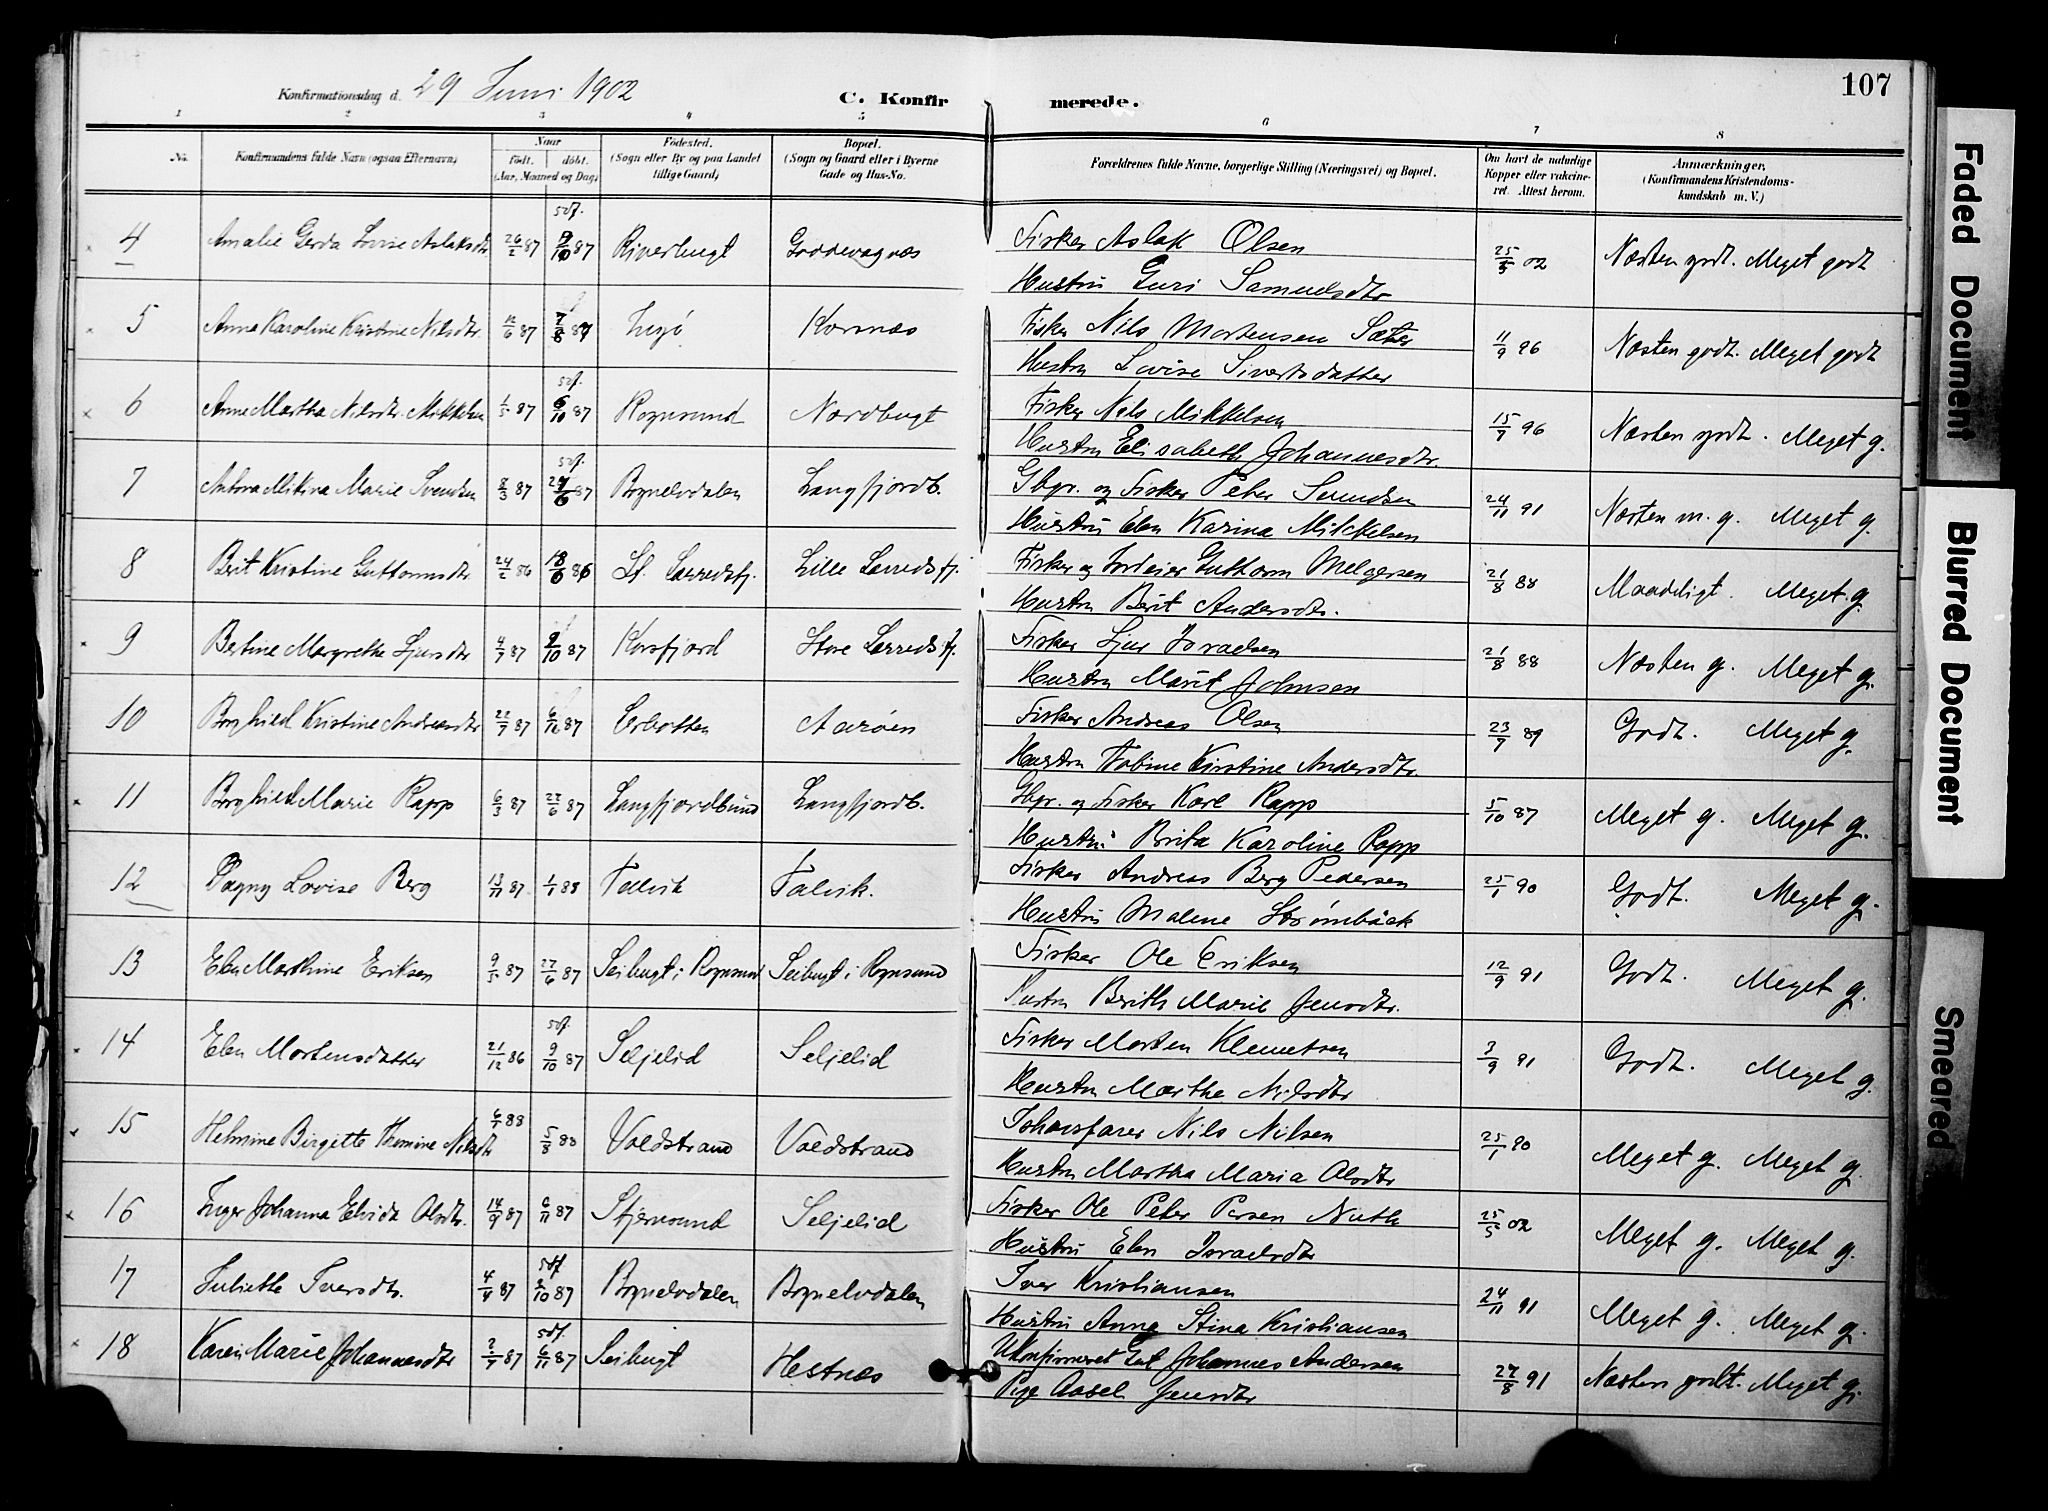 Konfirmationsdag d. 29 Juni 1902 C. Konfirmerede. 107
1 2 3 4 5 6 7 8
No. Konfirmandens fulde Navn (ogsaa Efternavn) Naar født. døbt. (Aar, Maaned og Dag) Fødested. (Sogn eller By og paa Landet tillige Gaard) Bopæl. (Sogn og Gaard eller i Byerne Gade og Hus-No. Forældrenes fulde Navne, borgerlige Stilling (Næringsvei) og Bopæl. Om havt de naturlige Kopper eller vakcineret. Attest herom. Anmærkninger. (Konfirmandens Kristendomskundskab m. V.)
4 Amalie Gerda Lovise Aslaksdtr 26/2 87 /10 87 Riverbugt Goddevagnæs Fisker Aslak Olsen 25/5 02 Næsten godt. Meget godt
Hustru Guri Samuelsdtr
5 Anna Karoline Kristine Nilsdtr. 12/6 87 7/8 87 Ingø Kornæs Fisker Nils Mortensen Sæter 11/9 96 Næsten godt. Meget godt
Hustru Lovise Sivertsdatter
6 Anne Martha Nilsdtr. Mikkelsen 1/5 87 6/10 87 Rognsund Nordbugt Fisker Nils Mikkelsen 15/7 96 Næsten godt. Meget g.
Hustru Elisabeth Johannesdtr.
7 Antona Mikina Marie Svendsen 8/3 87 /6 87 Bognelvdalen Langfjordb. Gbgr. og Fisker Peter Svendsen 24/11 91 Næsten m. g. Meget g.
Hustru Elen Karina Mikkelsen
8 Berit Kristine Guttormsdtr 24/2 86 18/6 86 Lt. Lerredsfj. Lille Lerredsfj. Fisker og Inderier Guthorm Melgersen 21/8 88 Maadeligt. Meget g.
Hustru Berit Andersdtr.
9 Bertine Margrethe Ljursdtr 4/7 87 9/10 87 Korsfjord Store Lerredsfj. Fisker Ljur Israelsen 21/8 88 Næsten g. Meget g.
Hustru Marit Johnsen
10 Borghild Kristine Andreasdtr 22/7 87 6/11 87 Lerbotten Aarøen Fisker Andreas Olsen 23/7 89 Godt. Meget g.
Hustru Tobine Kirstine Andersdtr.
11 Borghild Marie Rapp 6/3 87 22/6 87 Langfjordbund Langfjordb. Gbgr. og Fisker Karl Rapp 5/10 87 Meget g. Meget g.
Hustru Brita Karoline Rapp
12 Dagny Lovise Berg 13/11 87 1/1 88 Talvik Talvik. Fisker Andreas Berg Pedersen 25/1 90 Godt. Meget g.
Hustru Malene Strømbäck
13 Elen Marthine Eriksen 9/5 87 27/6 87 Seibugt i Rognsund Seibugt i Rognsund Fisker Ole Eriksen 12/9 91 Godt. Meget g.
Hustru Berith Marie Jensdtr.
14 Elen Mortensdatter 21/12 86 9/10 87 Seljelid Seljelid Fisker Morten Klemetsen 3/9 91 Godt. Meget g.
Hustru Marthe Nilsdtr
15 Helmine Birgitte Thomine Nilsdtr 6/7 88 5/8 88 Voldstrand Voldstrand Inhavsfarer Nils Nilsen 25/1 90 Meget g. Meget g.
Hustru Martha Maria Olsdtr
16 Inger Johanna Elvida Olsdtr. 14/9 87 6/11 87 Stjernsund Seljelid Fisker Ole Peter Persen Nuth 25/5 02 Meget g. Meget g.
Hustru Elen Israelsdtr
17 Juliette Iversdtr. 4/4 87 2/10 87 Bognelvdalen Bognelvdalen Iver Kristiansen 24/11 91 Meget g. Meget g.
Hustru Anna Stina Kristiansen
18 Karen Marie Johannesdtr 2/7 87 6/11 87 Seibugt Hestnæs Ukonfirmeret Johannes Andersen 27/8 91 Næsten godt. Meget g.
Pige Aasel Jensdtr
Faded Document
Blurred Document
Smeared